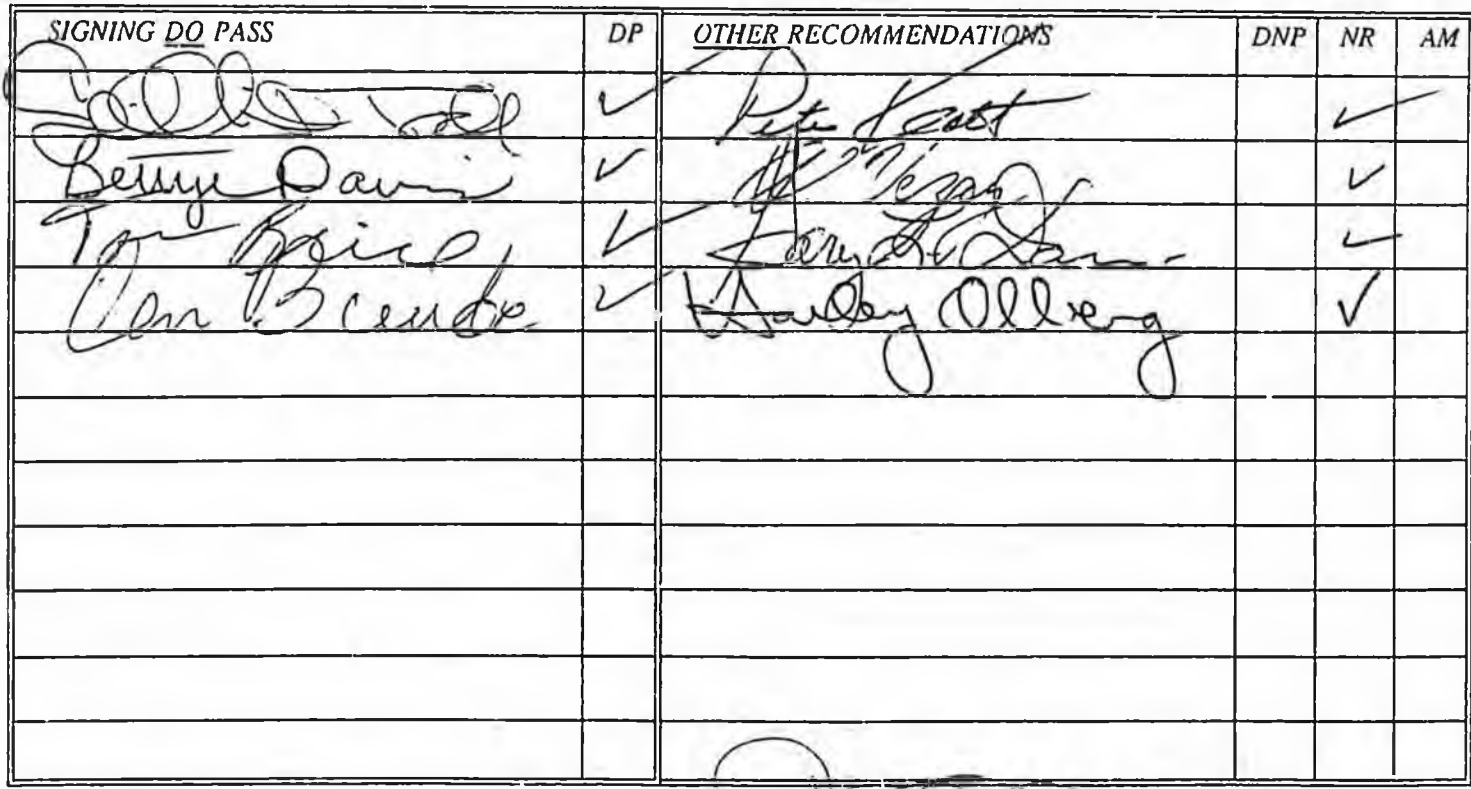 SIGNING DO PASS DP OTHER RECOMMENDATIONS DNP NR AM
✓ Pete Kott ✓
Bettye Davis ✓ Al Vezey ✓
Tom Brice ✓ Gary L. Davis ✓
Con Bunde ✓ Harley Olberg ✓